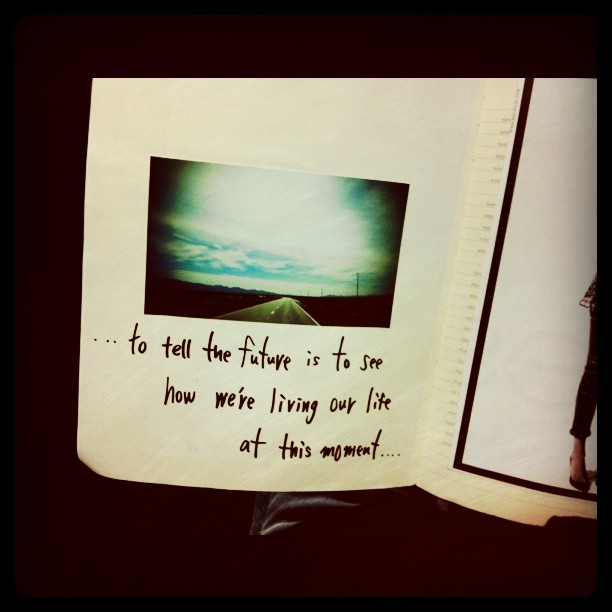 ... to tell the future is to see
how we're living our life
at this moment....